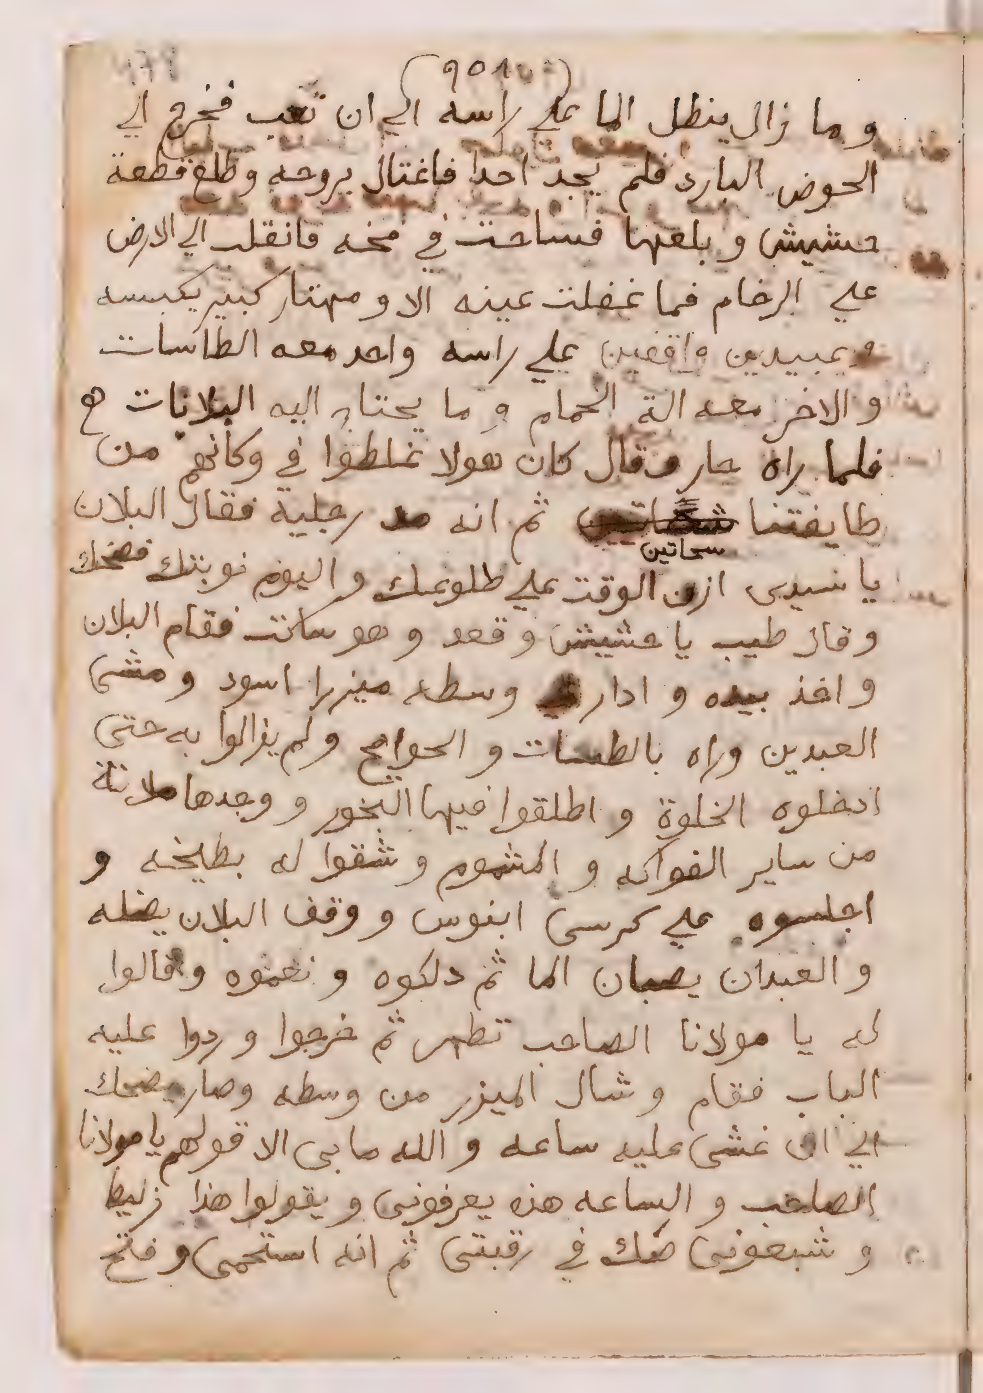 وما زال ينطل الما علي راسه الي ان تعب فخرج الي
الحوض البارد فلم يجد احدا فاغتال بروحه وطلع قطعة
حشيش وبلعها فساحت في مخه فانقلب الي الارض
علي الرخام فما غفلت عينه الا ومهتار كبير يكبسه
وعبيدين واقفين علي راسه واحد معه الطاسات
والاخر معه الة الحمام وما يحتاج اليه البلانات
فلما راه حار وقال كان هولا غلطوا في وكانهم من
طايفتنا
سحاتين
ثم انه مد رجلية فقال البلان
يا سيدى ازف الوقت علي طلوعك واليوم نوبتك فضحك
وقال طيب يا حشيش وقعد وهو ساكت فقام البلان
واخذ بيده وادار وسطه ميزرا اسود ومشى
العبدين وراه بالطسات والحوايج ولم يزالوا به حتى
ادخلوه الخلوة واطلقوا فيها البخور ووجدها ملانة
من ساير الفواكه والمشموم وشقوا له بطيخه و
اجلسوه علي كرسى ابنوس ووقف البلان يغسله
والعبدان يصبان الما ثم دلكوه ونعموه وقالوا
له يا مولانا الصاحب تطهر ثم خرجوا وردوا عليه
الباب فقام وشال الميزر من وسطه وصار يضحك
الي ان غشى عليه ساعه والله ما بى الا قولهم يا مولانا
الصاحب والساعه هذه يعرفونى ويقولوا هذا زليط
وشبعونى صك في رقبتى ثم انه استحمى وفتح